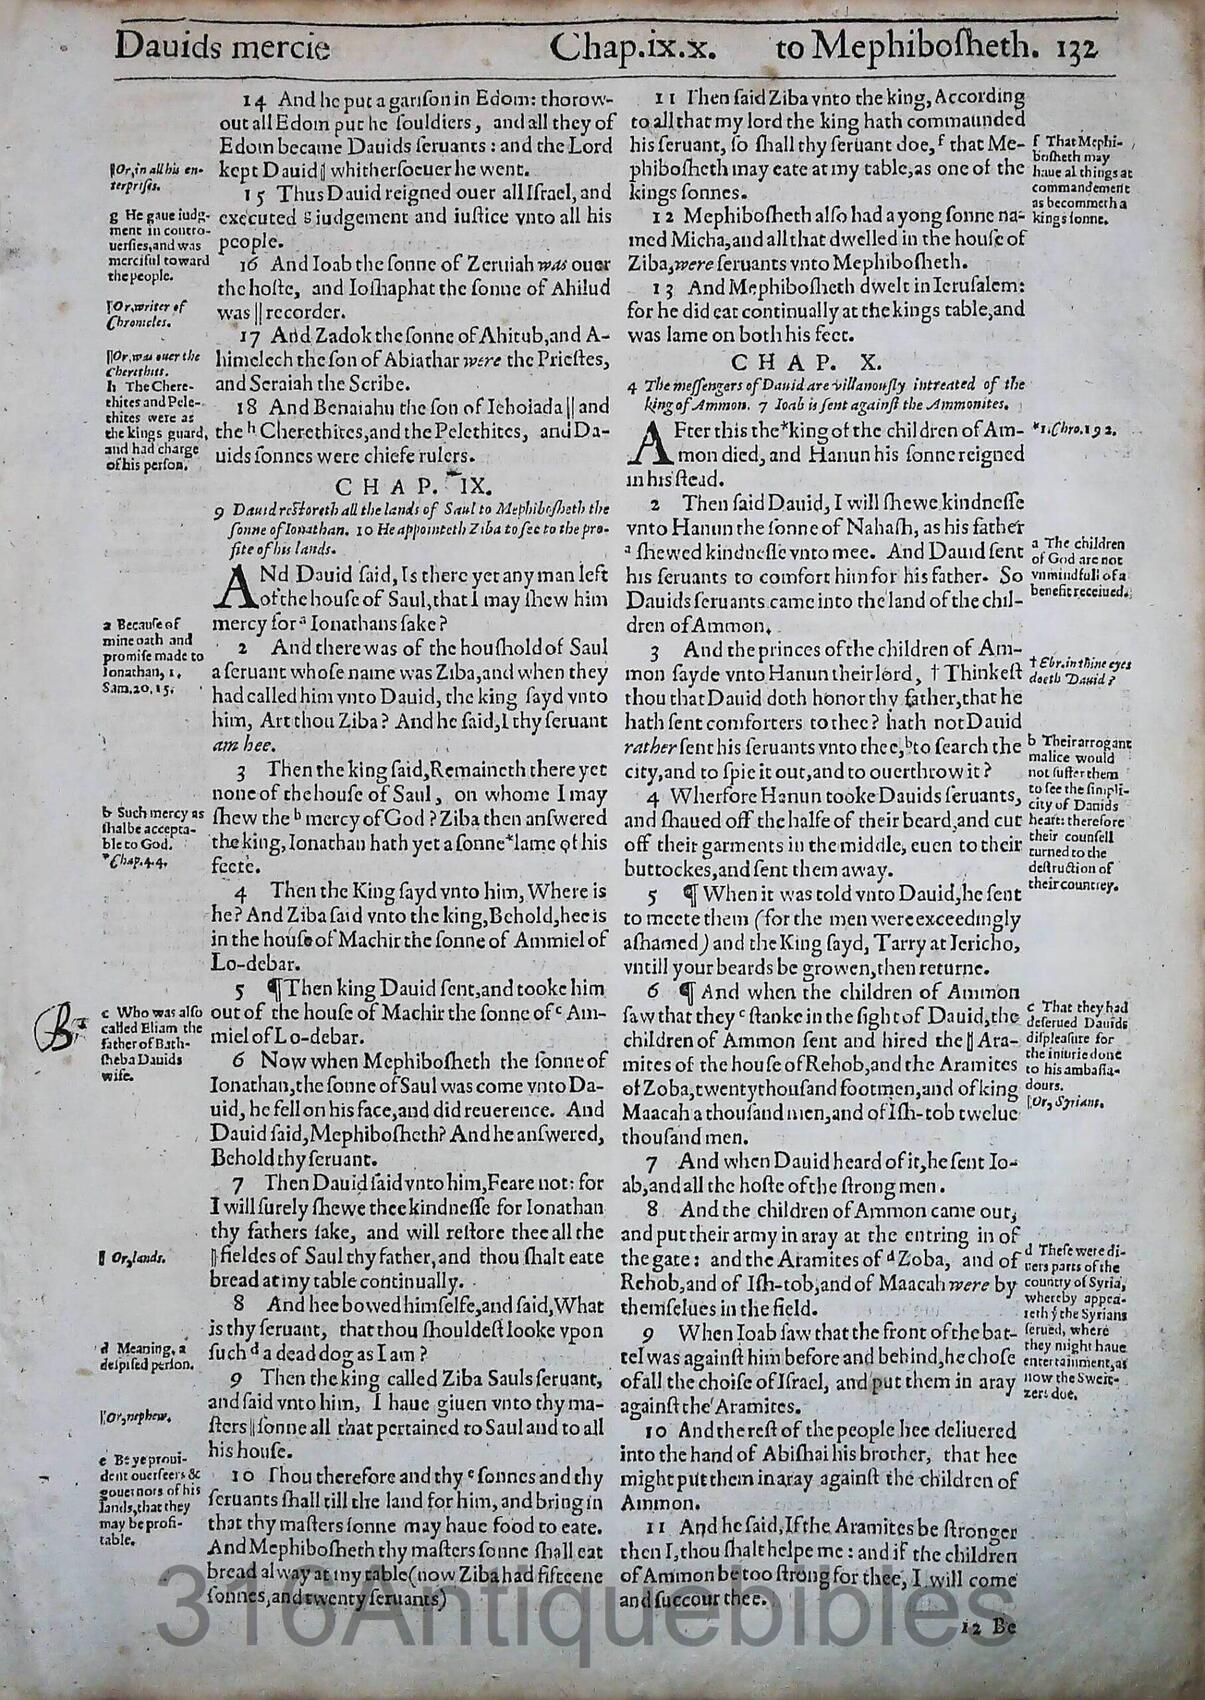 Dauids mercie Chap.ix.x. to Mephiboſheth. 132
14 And he put a gariſon in Edom: thorow-
out all Edom put he ſouldiers, and all they of
Edom became Dauids ſeruants: and the Lord
kept Dauid ‖ whitherſoeuer he went.
15 Thus Dauid reigned ouer all Iſrael, and
executed g iudgement and iuſtice vnto all his
people.
16 And Ioab the ſonne of Zeruiah was ouer
the hoſte, and Ioſhaphat the ſonne of Ahilud
was ‖ recorder.
17 And Zadok the ſonne of Ahitub, and A-
himelech the ſon of Abiathar were the Prieſtes,
and Seraiah the Scribe.
18 And Benaiahu the ſon of Iehoiada ‖ and
the h Cherethites, and the Pelethites, and Da-
uids ſonnes were chiefe rulers.
‖Or, in all his en-
terpriſes.
g He gaue iudg-
ment in contro-
uerſies, and was
merciful toward
the people.
‖Or, writer of
Chronicles.
‖Or, was ouer the
Cherethits.
h The Chere-
thites and Pele-
thites were as
the kings guard,
and had charge
of his perſon.
CHAP. IX.
9 Dauid reſtoreth all the lands of Saul to Mephiboſheth the
ſonne of Ionathan. 10 He appointeth Ziba to ſee to the pro-
fite of his lands.
ANd Dauid ſaid, Is there yet any man left
of the houſe of Saul, that I may ſhew him
mercy for a Ionathans ſake?
2 And there was of the houſhold of Saul
a ſeruant whoſe name was Ziba, and when they
had called him vnto Dauid, the king ſayd vnto
him, Art thou Ziba? And he ſaid, I thy ſeruant
am hee.
3 Then the king ſaid, Remaineth there yet
none of the houſe of Saul, on whome I may
ſhew the b mercy of God? Ziba then anſwered
the king, Ionathan hath yet a ſonne *lame of his
feete.
4 Then the King ſayd vnto him, Where is
he? And Ziba ſaid vnto the king, Behold, hee is
in the houſe of Machir the ſonne of Ammiel of
Lo-debar.
5 ¶Then king Dauid ſent, and tooke him
out of the houſe of Machir the ſonne of c Am-
miel of Lo-debar.
6 Now when Mephiboſheth the ſonne of
Ionathan, the ſonne of Saul was come vnto Da-
uid, he fell on his face, and did reuerence. And
Dauid ſaid, Mephiboſheth? And he anſwered,
Behold thy ſeruant.
7 Then Dauid ſaid vnto him, Feare not: for
I will ſurely ſhewe thee kindneſſe for Ionathan
thy fathers ſake, and will reſtore thee all the
‖fieldes of Saul thy father, and thou ſhalt eate
bread at my table continually.
8 And hee bowed himſelfe, and ſaid, What
is thy ſeruant, that thou ſhouldeſt looke vpon
ſuch d a dead dog as I am?
9 Then the king called Ziba Sauls ſeruant,
and ſaid vnto him, I haue giuen vnto thy ma-
ſters ‖ſonne all that pertained to Saul and to all
his houſe.
10 Thou therefore and thy e ſonnes and thy
ſeruants ſhall till the land for him, and bring in
that thy maſters ſonne may haue food to eate.
And Mephiboſheth thy maſters ſonne ſhall eat
bread alway at my table (now Ziba had fifteene
ſonnes, and twenty ſeruants)
a Becauſe of
mine oath and
promiſe made to
Ionathan, 1.
Sam.20.15.
b Such mercy as
ſhalbe accepta-
ble to God.
*Chap.4.4.
B.
c Who was alſo
called Eliam the
father of Bath-
ſheba Dauids
wife.
‖ Or, lands.
d Meaning, a
deſpiſed perſon.
‖Or, nephew.
e Be ye proui-
dent ouerſeers &
gouernors of his
lands, that they
may be profi-
table.
11 Then ſaid Ziba vnto the king, According
to all that my lord the king hath commaunded
his ſeruant, ſo ſhall thy ſeruant doe, f that Me-
phiboſheth may eate at my table, as one of the
kings ſonnes.
12 Mephiboſheth alſo had a yong ſonne na-
med Micha, and all that dwelled in the houſe of
Ziba, were ſeruants vnto Mephiboſheth.
13 And Mephiboſheth dwelt in Ieruſalem:
for he did eat continually at the kings table, and
was lame on both his feet.
f That Mephi-
boſheth may
haue al things at
commandement
as becommeth a
kings ſonne.
CHAP. X.
4 The meſſengers of Dauid are villanouſly intreated of the
king of Ammon. 7 Ioab is ſent againſt the Ammonites.
AFter this the *king of the children of Am-
mon died, and Hanun his ſonne reigned
in his ſtead.
2 Then ſaid Dauid, I will ſhewe kindneſſe
vnto Hanun the ſonne of Nahaſh, as his father
a ſhewed kindneſſe vnto mee. And Dauid ſent
his ſeruants to comfort him for his father. So
Dauids ſeruants came into the land of the chil-
dren of Ammon.
3 And the princes of the children of Am-
mon ſayde vnto Hanun their lord, † Thinkeſt
thou that Dauid doth honor thy father, that he
hath ſent comforters to thee? hath not Dauid
rather ſent his ſeruants vnto thee, b to ſearch the
city, and to ſpie it out, and to ouerthrow it?
4 Wherfore Hanun tooke Dauids ſeruants,
and ſhaued off the halfe of their beard, and cut
off their garments in the middle, euen to their
buttockes, and ſent them away.
5 ¶ When it was told vnto Dauid, he ſent
to meete them (for the men were exceedingly
aſhamed) and the King ſayd, Tarry at Jericho,
vntill your beards be growen, then returne.
6 ¶ And when the children of Ammon
ſaw that they c ſtanke in the ſight of Dauid, the
children of Ammon ſent and hired the ‖ Ara-
mites of the houſe of Rehob, and the Aramites
of Zoba, twenty thouſand footmen, and of king
Maacah a thouſand men, and of Iſh-tob twelue
thouſand men.
7 And when Dauid heard of it, he ſent Io-
ab, and all the hoſte of the ſtrong men.
8 And the children of Ammon came out,
and put their army in aray at the entring in of
the gate: and the Aramites of d Zoba, and of
Rehob, and of Iſh-tob, and of Maacah were by
themſelues in the field.
9 When Ioab ſaw that the front of the bat-
tel was againſt him before and behind, he choſe
of all the choiſe of Iſrael, and put them in aray
againſt the Aramites.
10 And the reſt of the people hee deliuered
into the hand of Abiſhai his brother, that hee
might put them in aray againſt the children of
Ammon.
11 And he ſaid, If the Aramites be ſtronger
then I, thou ſhalt helpe me: and if the children
of Ammon be too ſtrong for thee, I will come
and ſuccour thee.
12 Be
*1.Chro.19 2.
a The children
of God are not
vnmindfull of a
benefit receiued.
†Ebr. in thine eyes
doeth Dauid?
b Their arrogant
malice would
not ſuffer them
to ſee the ſimpli-
city of Dauids
heart: therefore
their counſell
turned to the
deſtruction of
their countrey.
c That they had
deſerued Dauids
diſpleaſure for
the iniurie done
to his ambaſſa-
dours.
‖Or, Syrians.
d Theſe were di-
uers parts of the
country of Syria,
whereby appea-
reth ẏ the Syrians
ſerued, where
they might haue
entertainment, as
now the Sweit-
zers doe.
316Antiquebibles